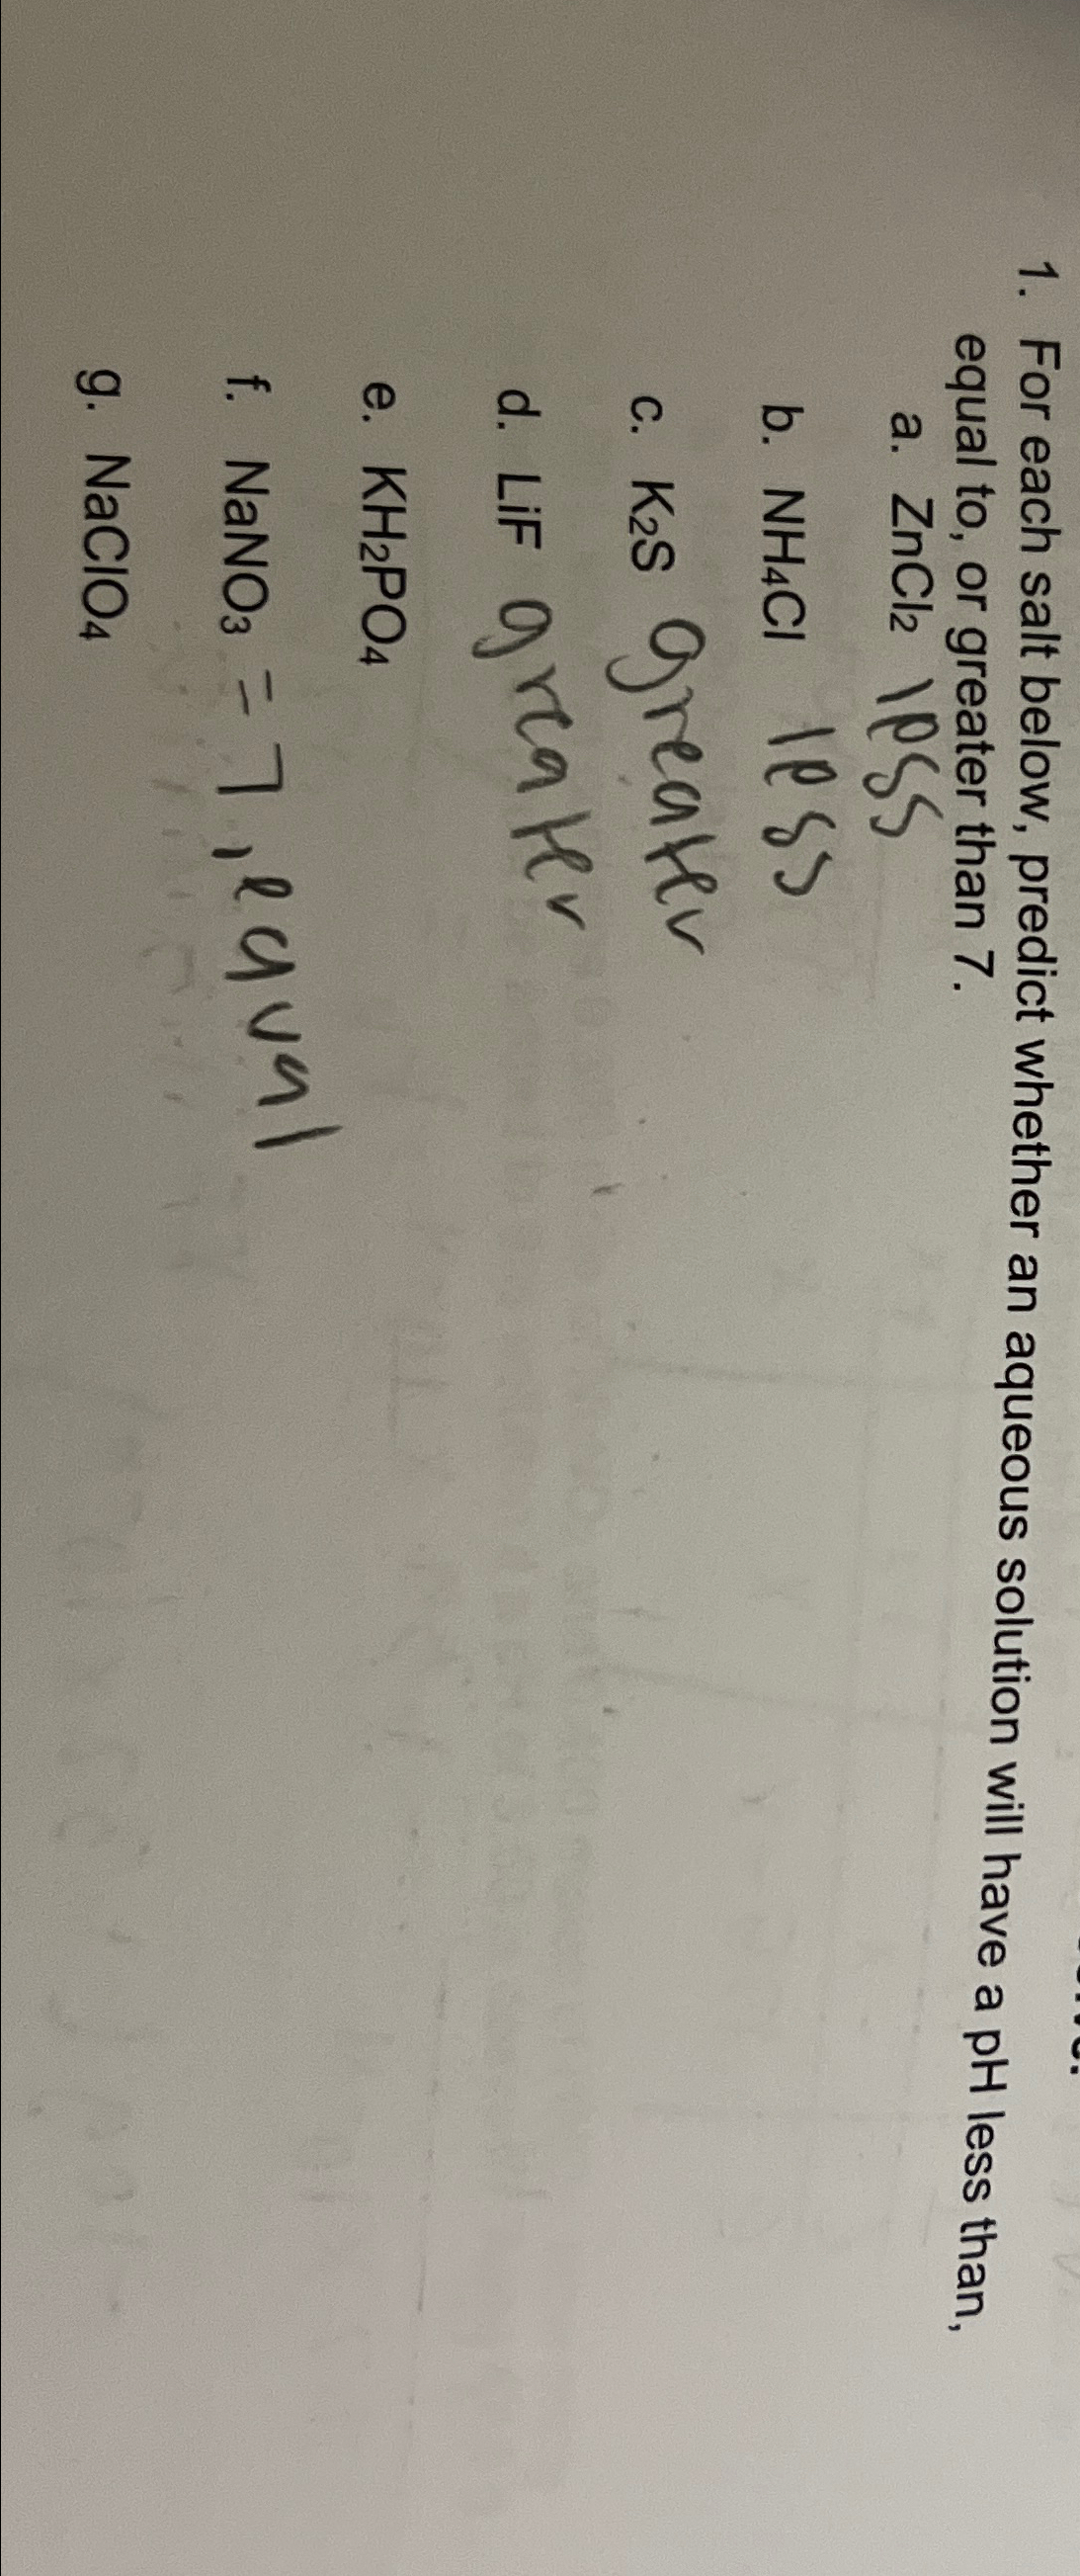 1. For each salt below, predict whether an aqueous solution will have a pH less than,
equal to, or greater than 7.
a. ZnCl₂ less
b. NH₄Cl less
c. K₂S greater
d. LiF greater
e. KH₂PO₄
f. NaNO₃ = 7, equal
g. NaClO₄